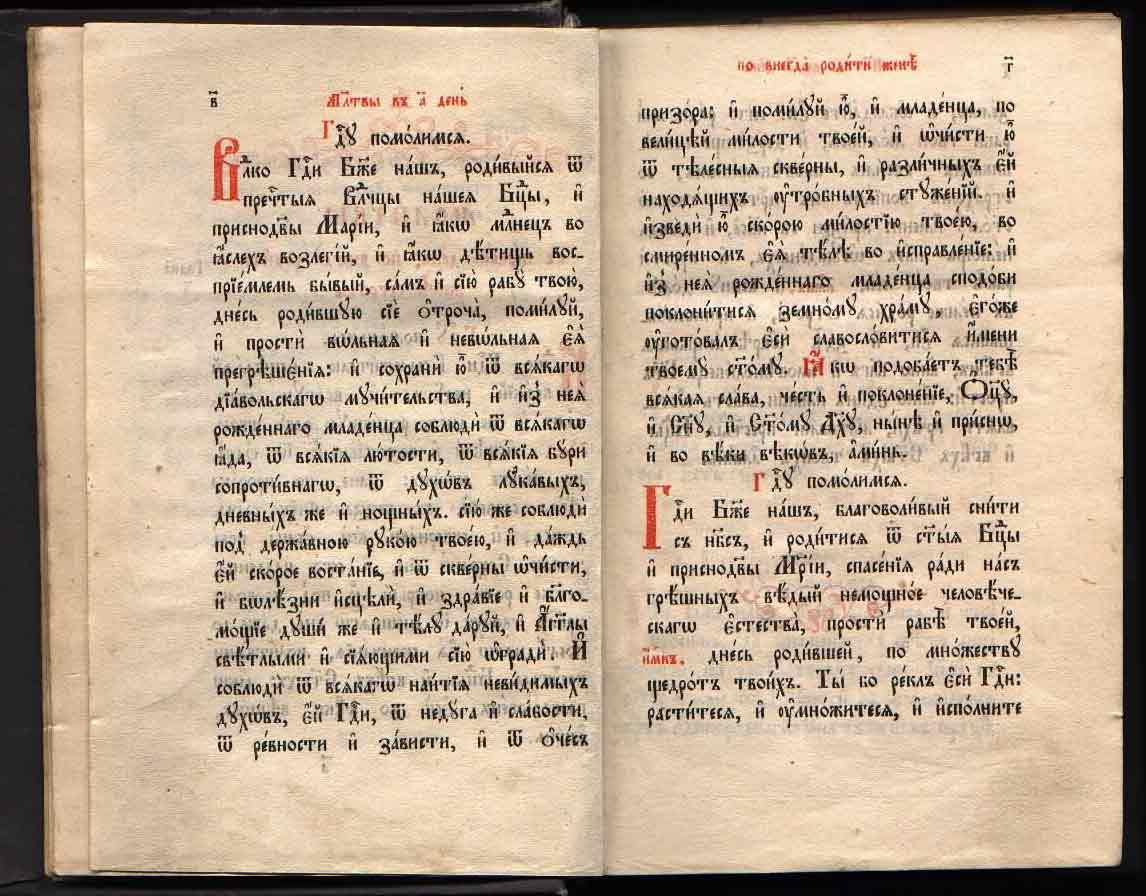 в҃
Мл҃твы въ а҃ день
Гдⷭ҇ꙋ помо́лимсѧ.
Влⷣко Гдⷭ҇и Бж҃е на́шъ, роди́выйсѧ ѿ
пречⷭ҇тыѧ Влⷣчцы на́шеѧ Бцⷣы, и҆
приснодв҃ы Марі́и, и҆ ꙗ҆́кѡ мл҃нецъ во
ꙗ҆́слехъ возлегі́й, и҆ ꙗ҆́кѡ дѣ́тищь вос-
прїе́млемь бы́вый, са́мъ и҆ сїю̀ рабꙋ̀ твою̀,
дне́сь роди́вшꙋю сїѐ ѻ҆троча̀, поми́лꙋй,
и҆ простѝ вѡ́льнаѧ и҆ невѡ́льнаѧ є҆ѧ̀
прегрѣшє́нїѧ: и҆ сохранѝ ю҆̀ ѿ всѧ́кагѡ
дїа́вольскагѡ мꙋчи́тельства, и҆ и҆з̾ неѧ̀
рожде́ннаго младе́нца соблюдѝ ѿ всѧ́кагѡ
ꙗ҆́да, ѿ всѧ́кїѧ лю́тости, ѿ всѧ́кїѧ бꙋ́ри
сопроти́внагѡ, ѿ дꙋхѡ́въ лꙋка́выхъ,
дневны́хъ же и҆ нощны́хъ. сїю́ же соблюдѝ
под̾ держа́вною рꙋко́ю твое́ю, и҆ да́ждь
є҆́й ско́рое воста́нїе, и҆ ѿ скве́рны ѡ҆чи́сти,
и҆ бѡлѣ́зни и҆сцѣлѝ, и҆ здра́вїе и҆ бл҃го-
мо́щїе дꙋшѝ же и҆ тѣ́лꙋ да́рꙋй, и҆ а҆́гг҃лы
свѣ́тлыми и҆ сїѧ́ющими сїю̀ ѡ҆градѝ. И҆
соблюдѝ ѿ всѧ́кагѡ наи́тїѧ неви́димыхъ
дꙋхѡ́въ, є҆́й Гдⷭ҇и, ѿ недꙋ́га и҆ сла́бости,
ѿ ре́вности и҆ за́висти, и҆ ѿ ѻ҆че́съ
по внегда̀ роди́ти женѣ̀
г҃
призо́ра: и҆ поми́лꙋй ю҆̀, и҆ младе́нца, по
вели́цѣй ми́лости твое́й, и҆ ѡ҆чи́сти ю҆̀
ѿ тѣле́сныѧ скве́рны, и҆ разли́чныхъ є҆́й
находѧ́щихъ ᲂу҆тро́бныхъ стꙋже́нїй. и҆
и҆зведѝ ю҆̀ ско́рою ми́лостїю твое́ю, во
смире́нномъ є҆ѧ̀ тѣ́лѣ во и҆справле́нїе: и҆
и҆з̾ неѧ̀ рожде́ннаго младе́нца сподо́би
поклони́тисѧ земно́мꙋ хра́мꙋ, є҆го́же
ᲂу҆гото́валъ є҆сѝ славосло́витисѧ и҆́мени
твоемꙋ̀ ст҃о́мꙋ. Ꙗ҆́кѡ подоба́етъ тебѣ̀
всѧ́каѧ сла́ва, че́сть и҆ поклоне́нїе, Ѻ҆ц҃ꙋ̀,
и҆ Сн҃ꙋ, и҆ Ст҃о́мꙋ Дх҃ꙋ, ны́нѣ и҆ при́снѡ,
и҆ во вѣ́ки вѣкѡ́въ, а҆ми́нь.
Гдⷭ҇ꙋ помо́лимсѧ.
Гдⷭ҇и Бж҃е на́шъ, благоволи́вый сни́ти
съ нб҃съ, и҆ роди́тисѧ ѿ ст҃ы́ѧ Бцⷣы
и҆ приснодв҃ы Мр҃і́и, спасе́нїѧ ра́ди на́съ
грѣ́шныхъ вѣ́дый немощно́е человѣ́че-
скагѡ є҆стества̀, простѝ рабѣ̀ твое́й,
и҆́м҃къ, дне́сь роди́вшей, по мно́жествꙋ
щедро́тъ твои́хъ. Ты́ бо ре́клъ є҆сѝ Гдⷭ҇и:
расти́тесѧ, и҆ ᲂу҆мно́житесѧ, и҆ и҆спо́лните